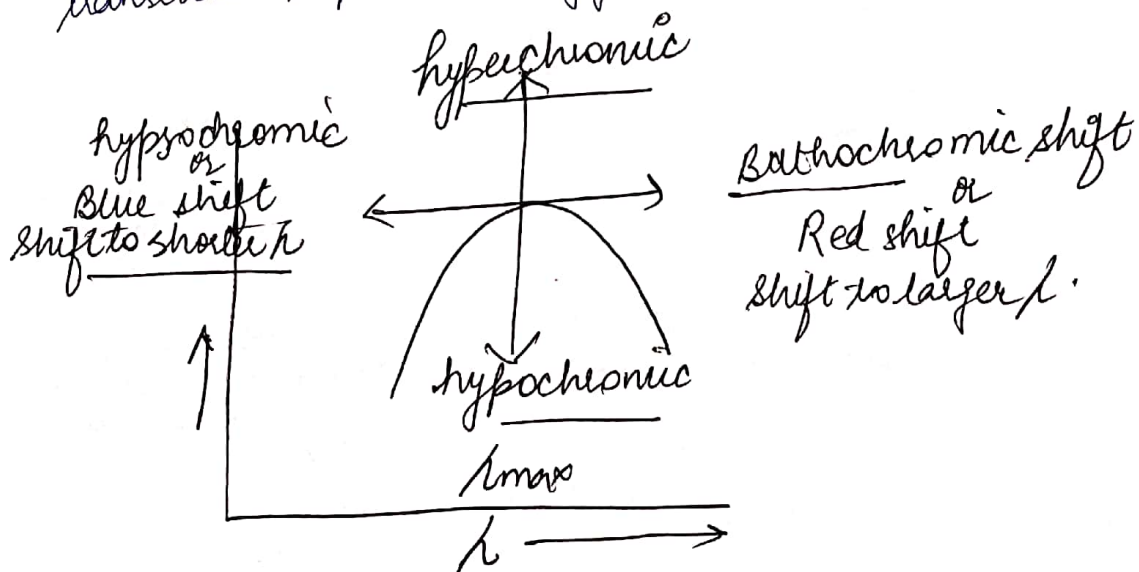 hyperchromic
hypsochromic
or
Blue shift
Shift to shorter λ
Bathochromic shift
or
Red shift
shift to larger λ.
hypochromic
λmax
λ